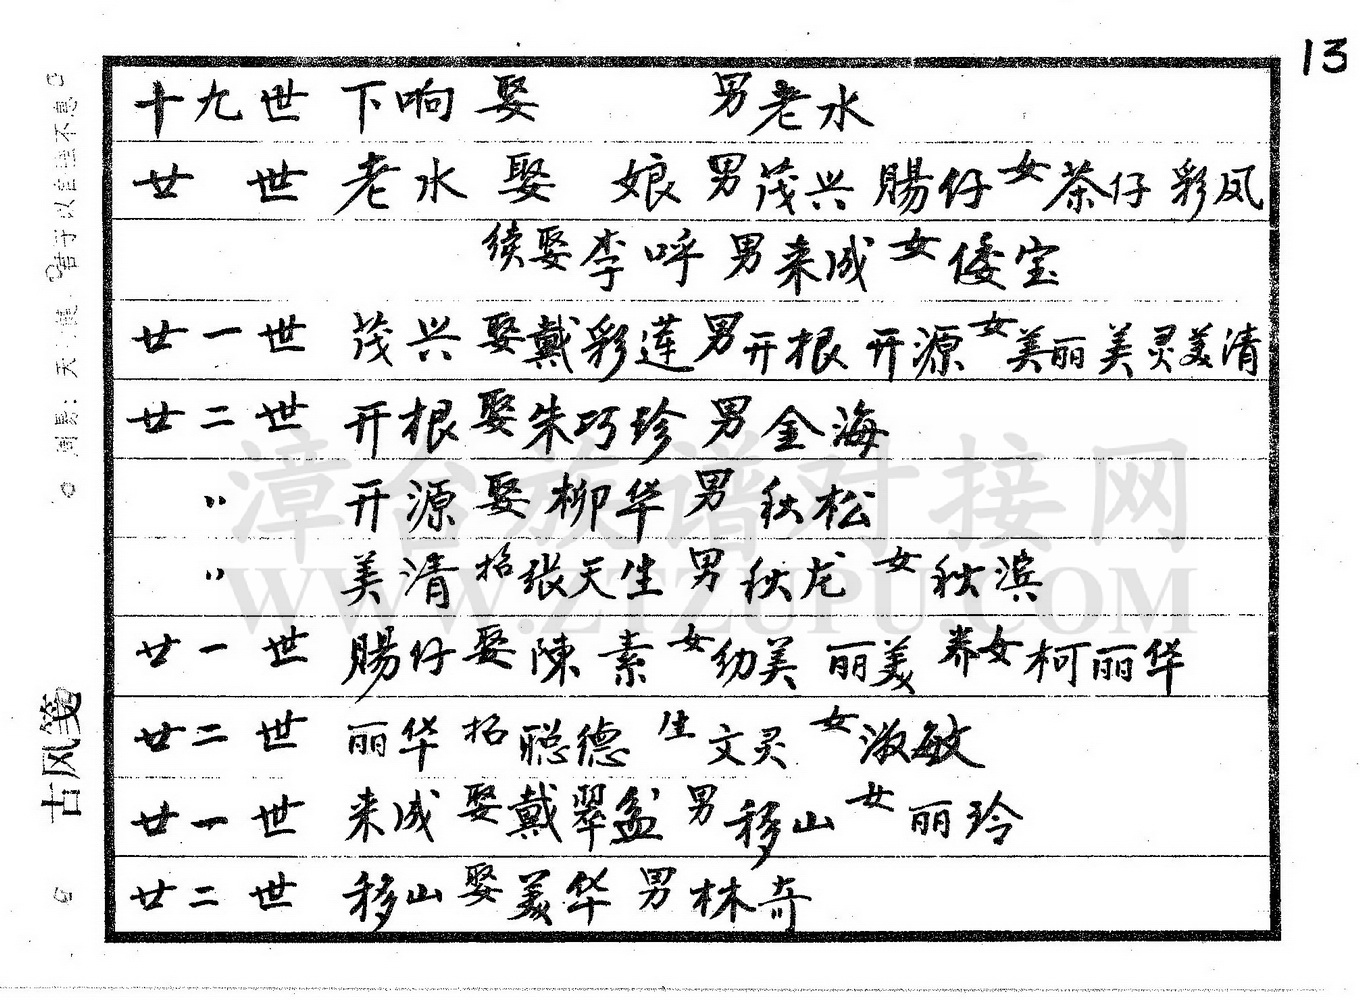 13
十九世 下响 娶 男老水
廿 世 老水 娶 娘 男茂兴 腸仔 女茶仔 彩凤
续娶李呼 男来成 女倭宝
廿一世 茂兴 娶戴彩莲 男开根 开源 女美丽 美灵 美清
廿二世 开根 娶朱巧珍 男金海
〃 开源 娶柳华 男秋松
〃 美清 招张天生 男秋龙 女秋滨
廿一世 腸仔 娶陳素 女幼美 丽美 养女柯丽华
廿二世 丽华 招聪德 生文灵 女淑敏
廿一世 来成 娶戴翠盆 男移山 女丽玲
廿二世 移山 娶美华 男林奇
古风笺
漳台族谱对接网
WWW.ZTZUPU.COM